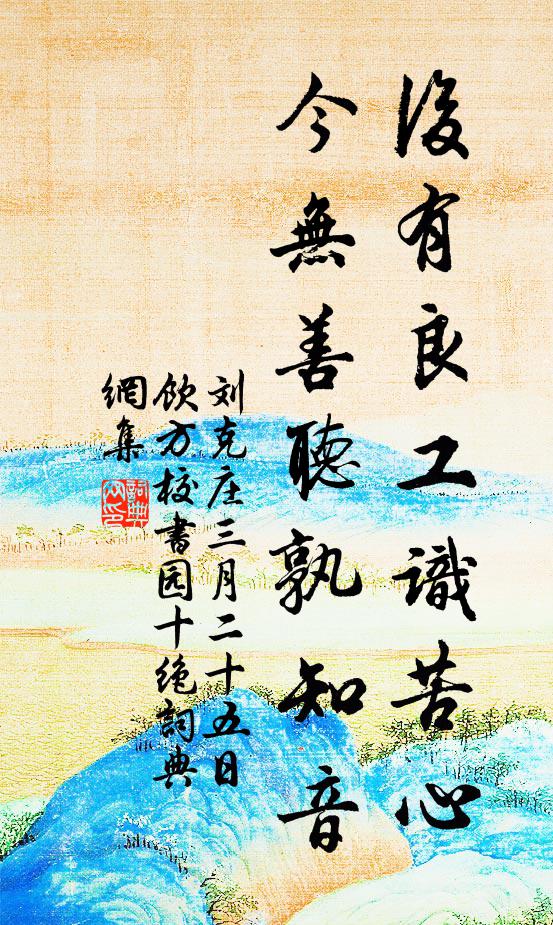 後有良工識苦心
今無善聽孰知音
刘克庄三月二十五日
飲方校書园十绝詞典
網集